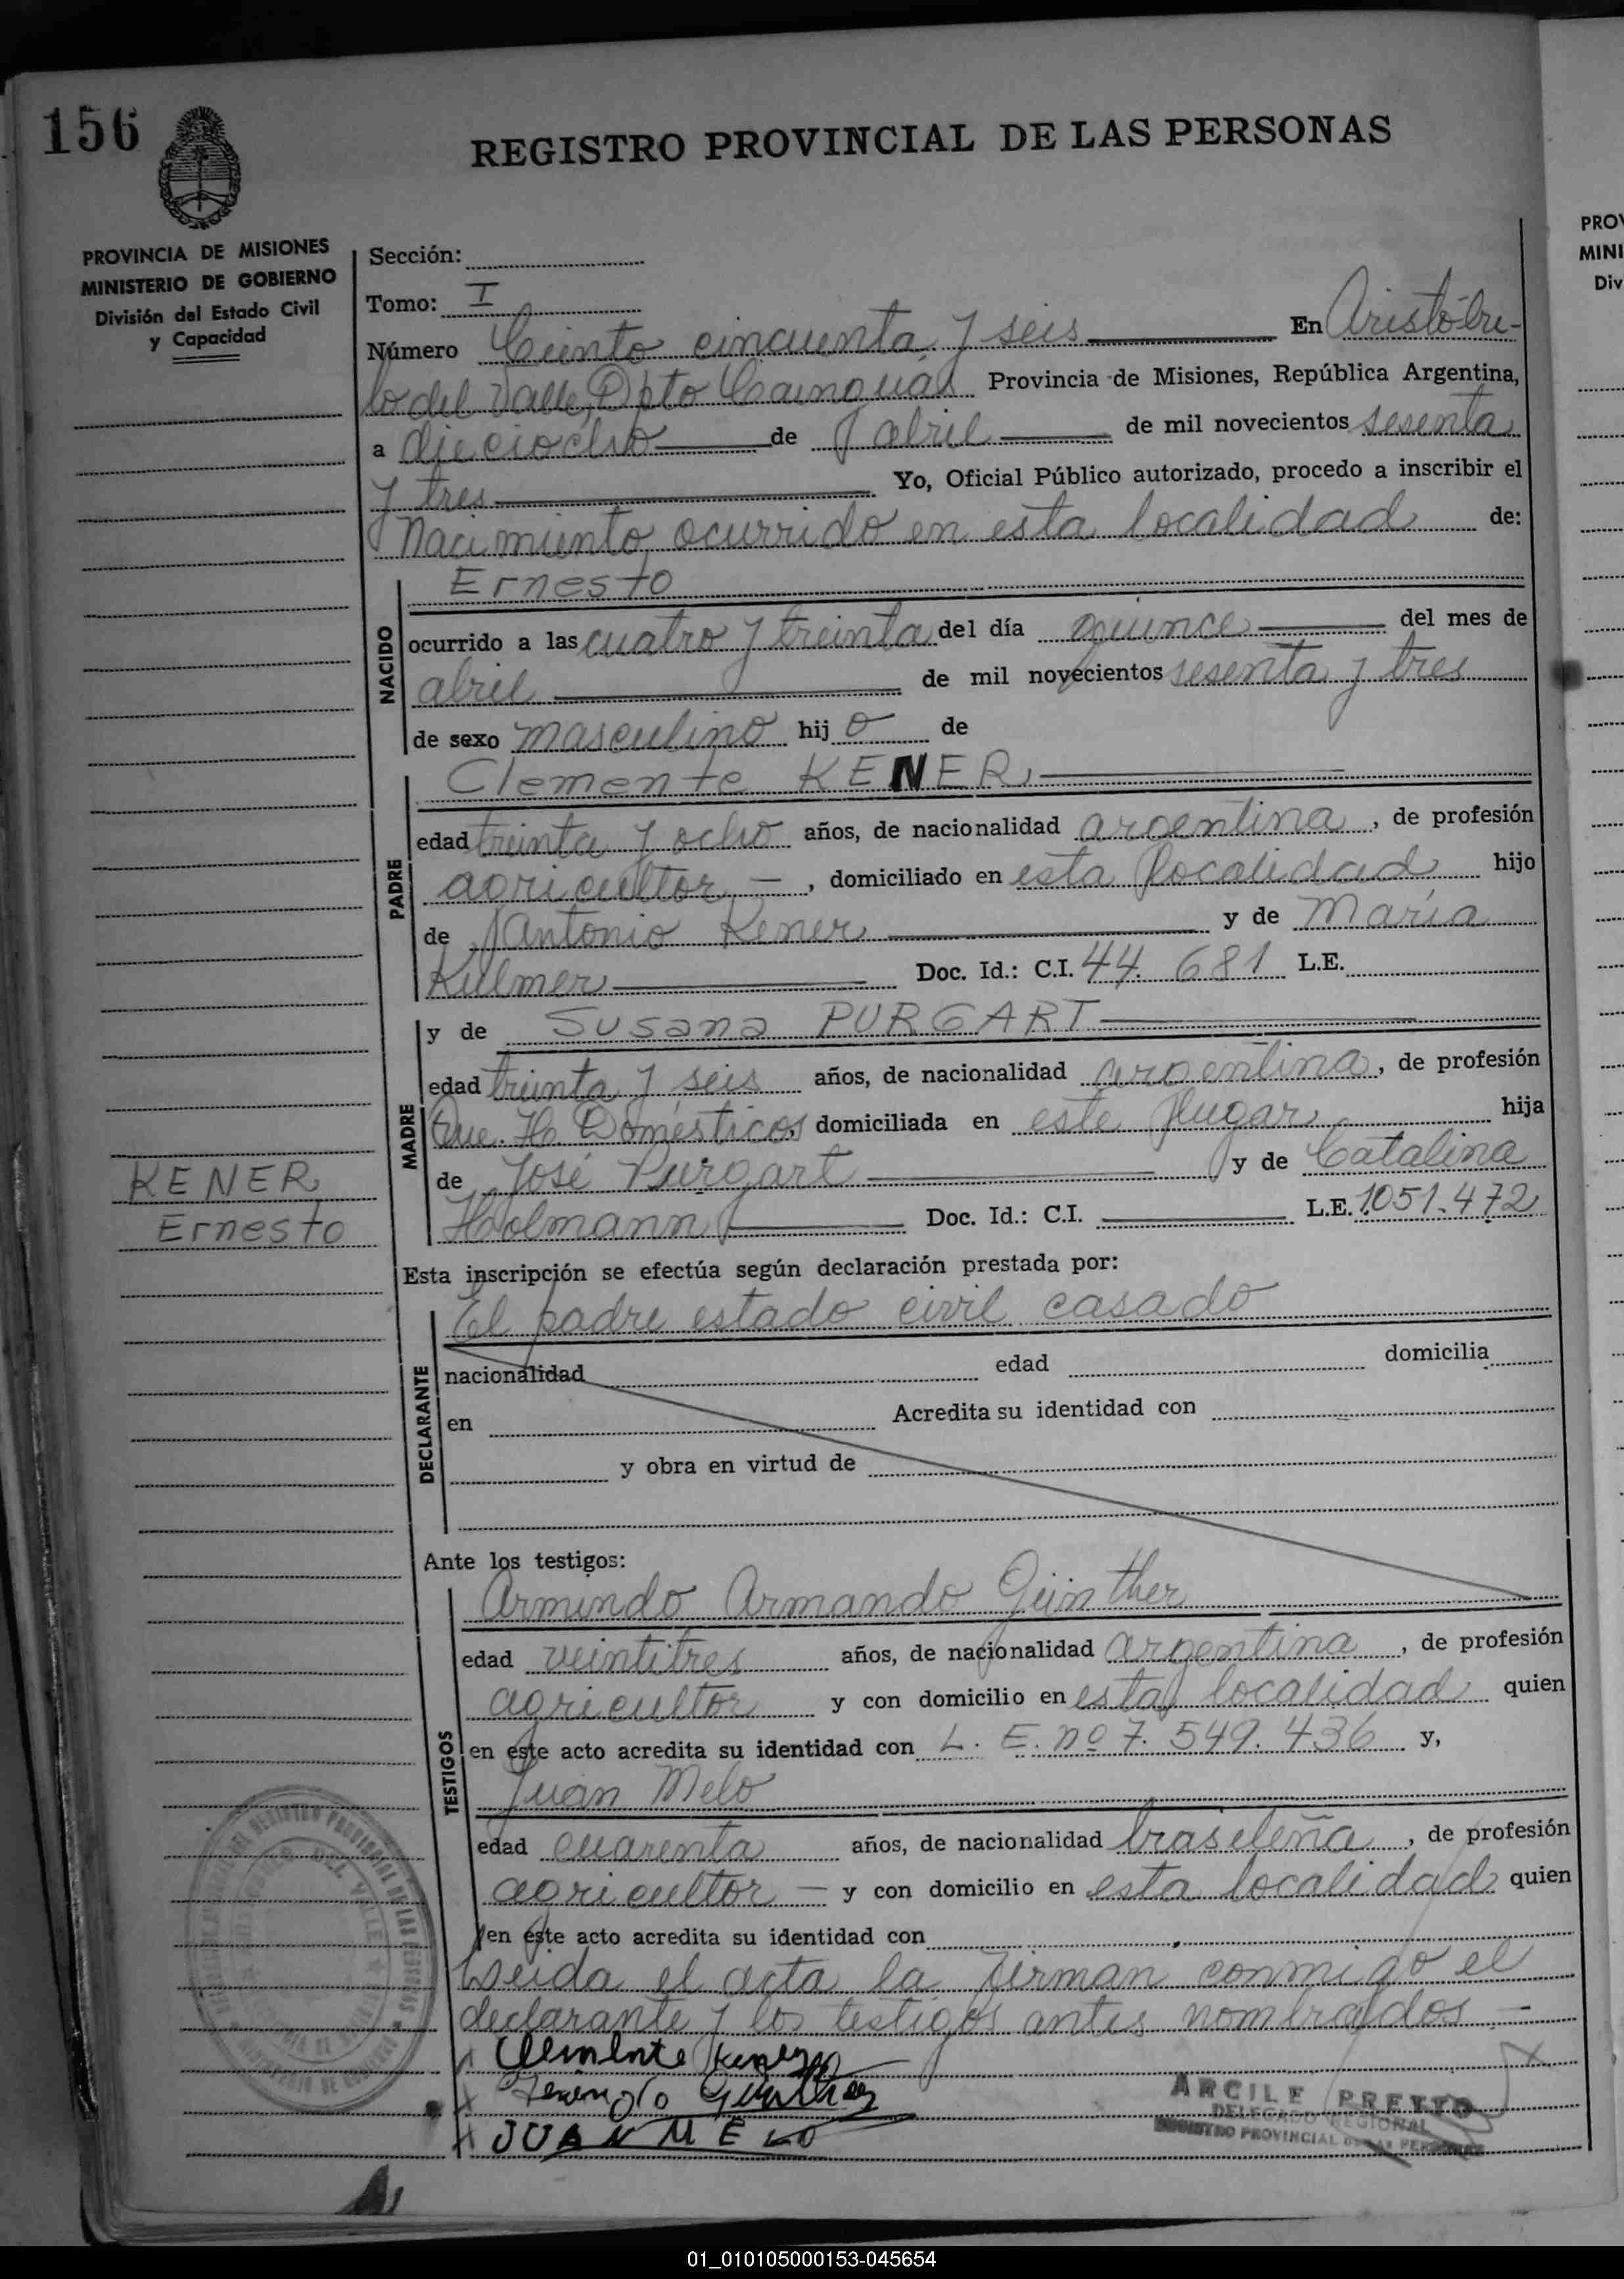 156
REGISTRO PROVINCIAL DE LAS PERSONAS
PROVINCIA DE MISIONES
MINISTERIO DE GOBIERNO
División del Estado Civil
y Capacidad
Sección:
Tomo: I
Número Ciento cincuenta y seis En Aristóbu-
lo del Valle, Dpto Cainguás Provincia de Misiones, República Argentina,
a dieciocho de abril de mil novecientos sesenta
y tres Yo, Oficial Público autorizado, procedo a inscribir el
Nacimiento ocurrido en esta localidad de:
NACIDO
Ernesto
ocurrido a las cuatro y treinta del día quince del mes de
abril de mil novecientos sesenta y tres
de sexo masculino hijo de
PADRE
Clemente KENER
edad treinta y ocho años, de nacionalidad argentina, de profesión
agricultor, domiciliado en esta localidad hijo
de Antonio Kener y de María
Kulmer Doc. Id.: C.I. 44.681 L.E.
MADRE
y de Susana PURGART
edad treinta y seis años, de nacionalidad argentina, de profesión
Que. H. Domésticos, domiciliada en este lugar hija
de José Purgart y de Catalina
Holmann Doc. Id.: C.I. L.E. 1.051.472
KENER
Ernesto
Esta inscripción se efectúa según declaración prestada por:
DECLARANTE
El padre estado civil casado
nacionalidad edad domicilia
en Acredita su identidad con
y obra en virtud de
Ante los testigos:
TESTIGOS
Armindo Armando Günther
edad veintitres años, de nacionalidad argentina, de profesión
agricultor y con domicilio en esta localidad quien
en este acto acredita su identidad con L. E. nº 7.549.436 y,
Juan Melo
edad cuarenta años, de nacionalidad brasileña, de profesión
agricultor — y con domicilio en esta localidad quien
en este acto acredita su identidad con
Leída el acta la firman conmigo el
declarante y los testigos antes nombrados —
Clemente Kener
Günther
JUAN MELO
ARCILE PRETTO
DELEGADO REGIONAL
REGISTRO PROVINCIAL DE LAS PERSONAS
PROV
MINI
Div
01_010105000153-045654